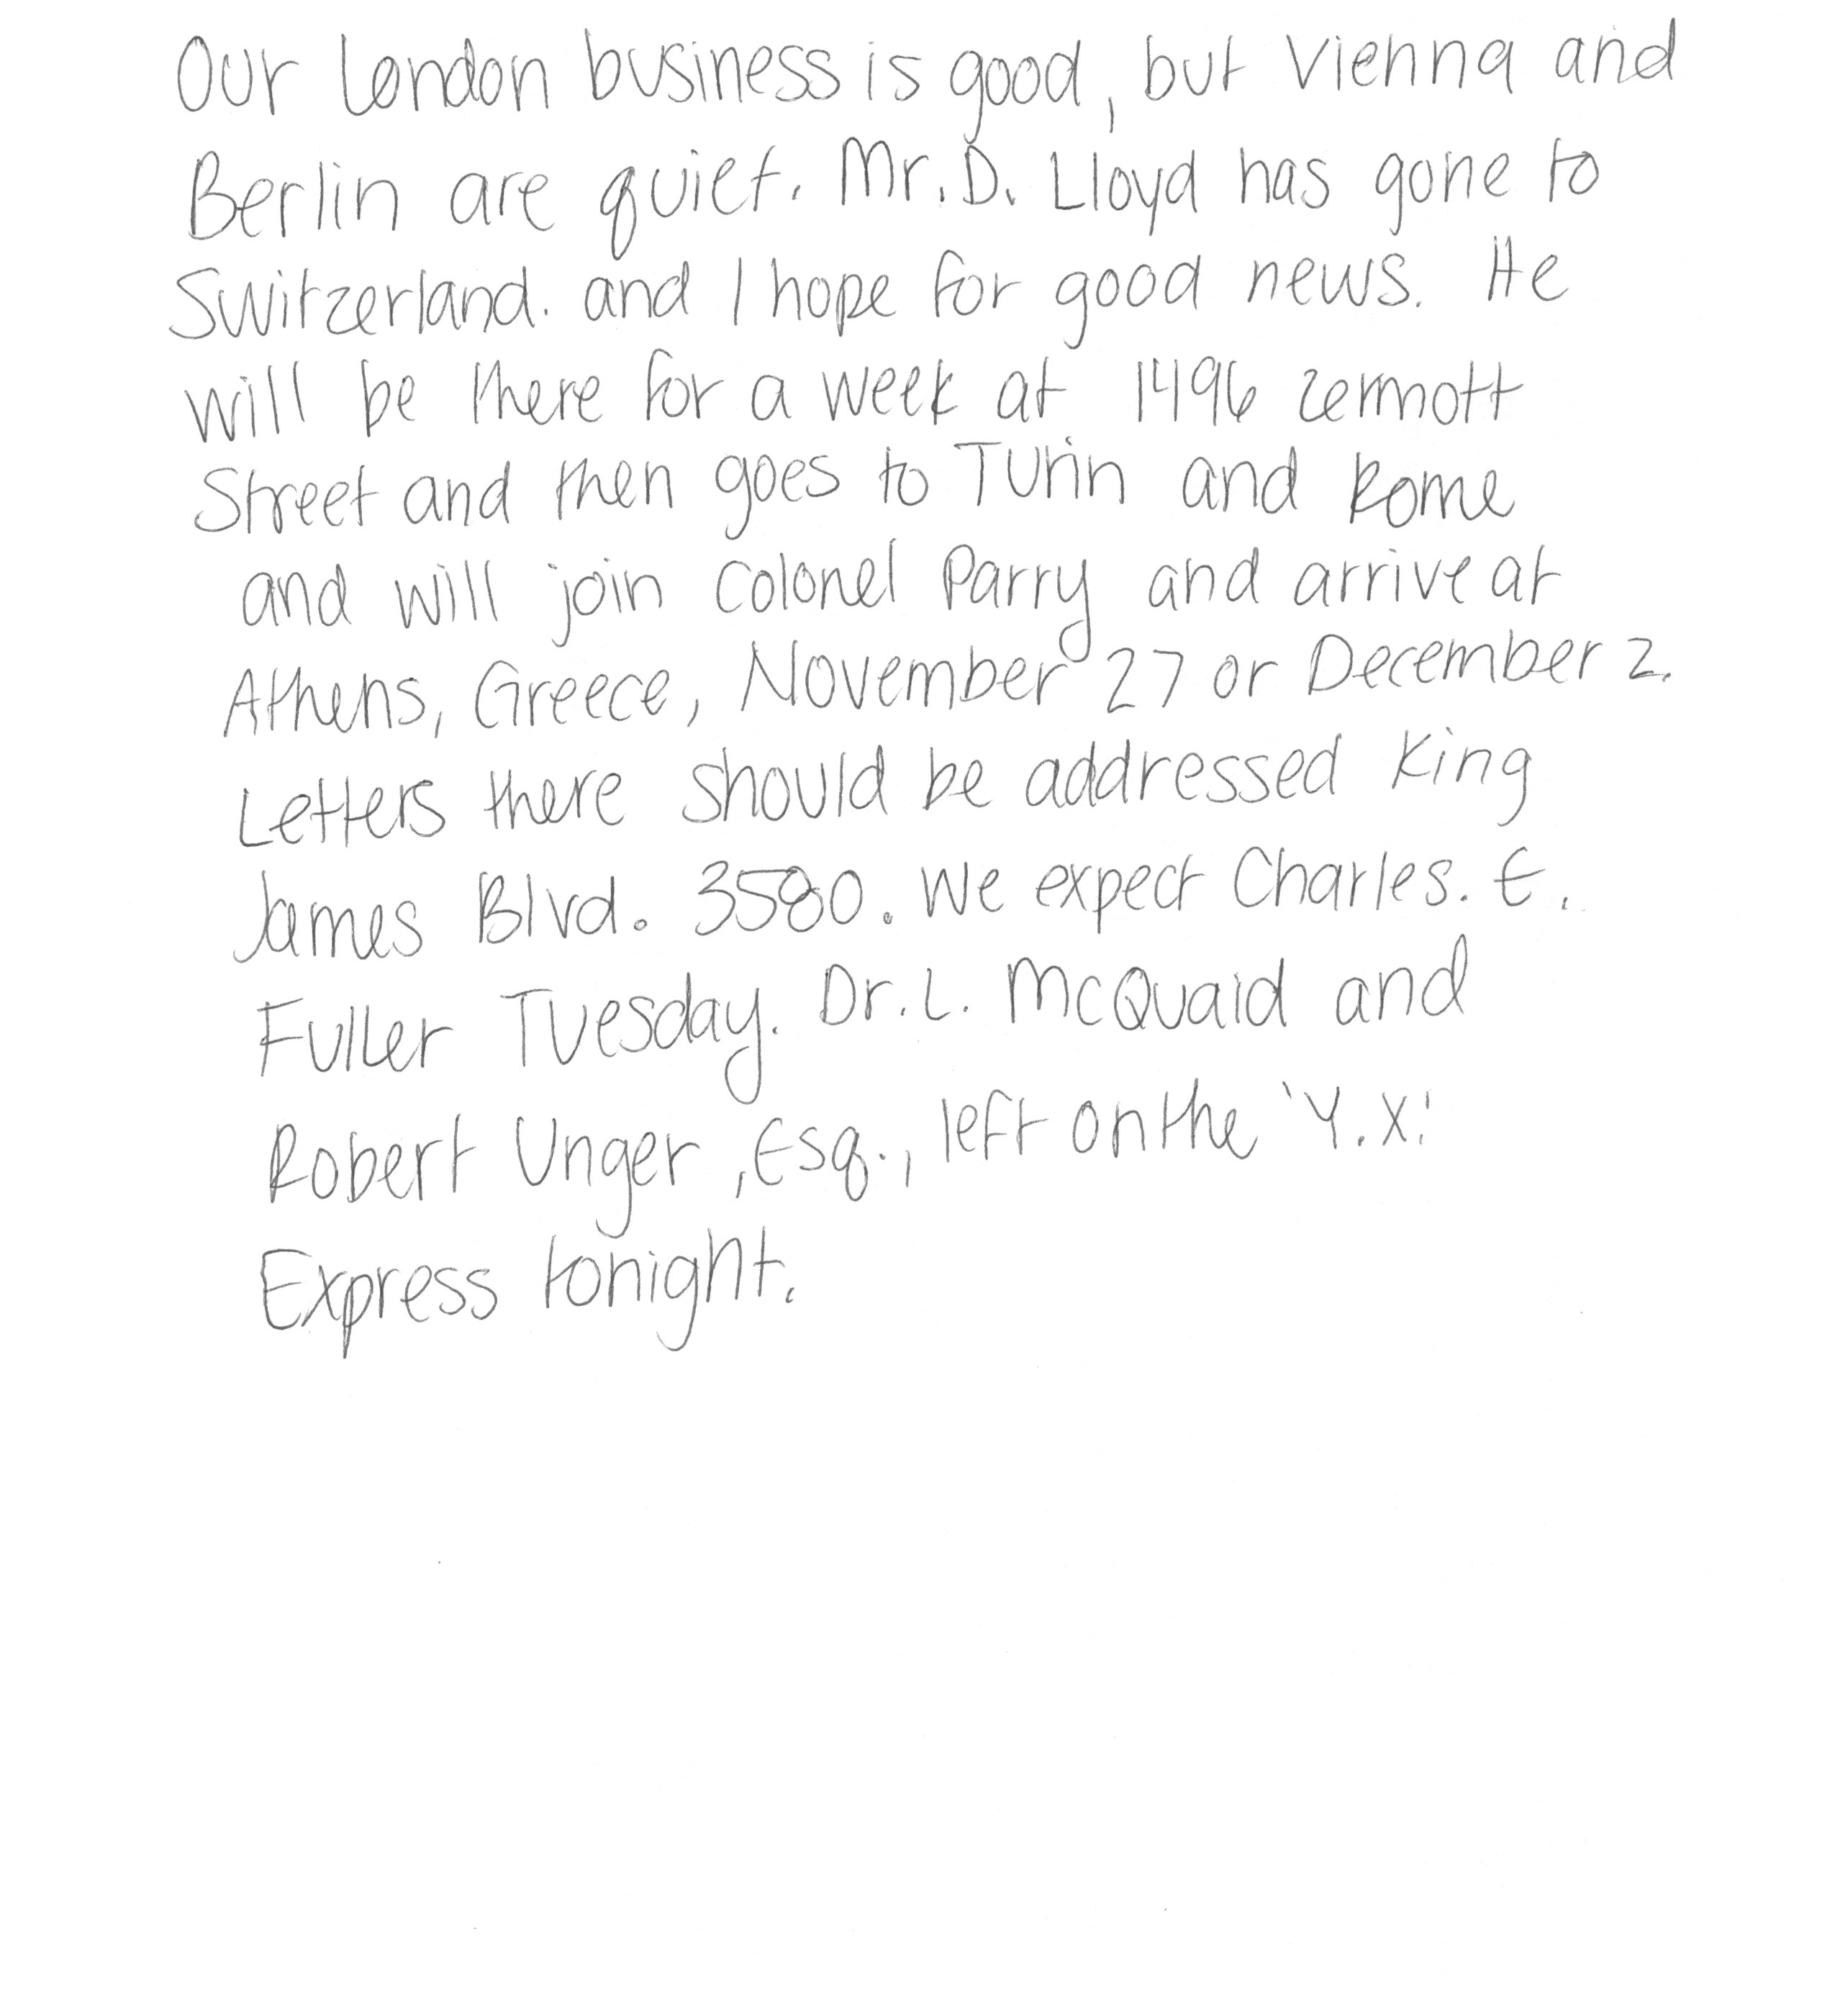 Our London business is good, but Vienna and
Berlin are quiet. Mr. D. Lloyd has gone to
Switzerland. and I hope for good news. He
will be there for a week at 1496 Zermott
Street and then goes to Turin and Rome
and will join Colonel Parry and arrive at
Athens, Greece, November 27 or December 2.
Letters there should be addressed King
James Blvd. 3580. We expect Charles. E.
Fuller Tuesday. Dr. L. McQuaid and
Robert Unger, Esq., left on the 'Y.X.'
Express tonight.